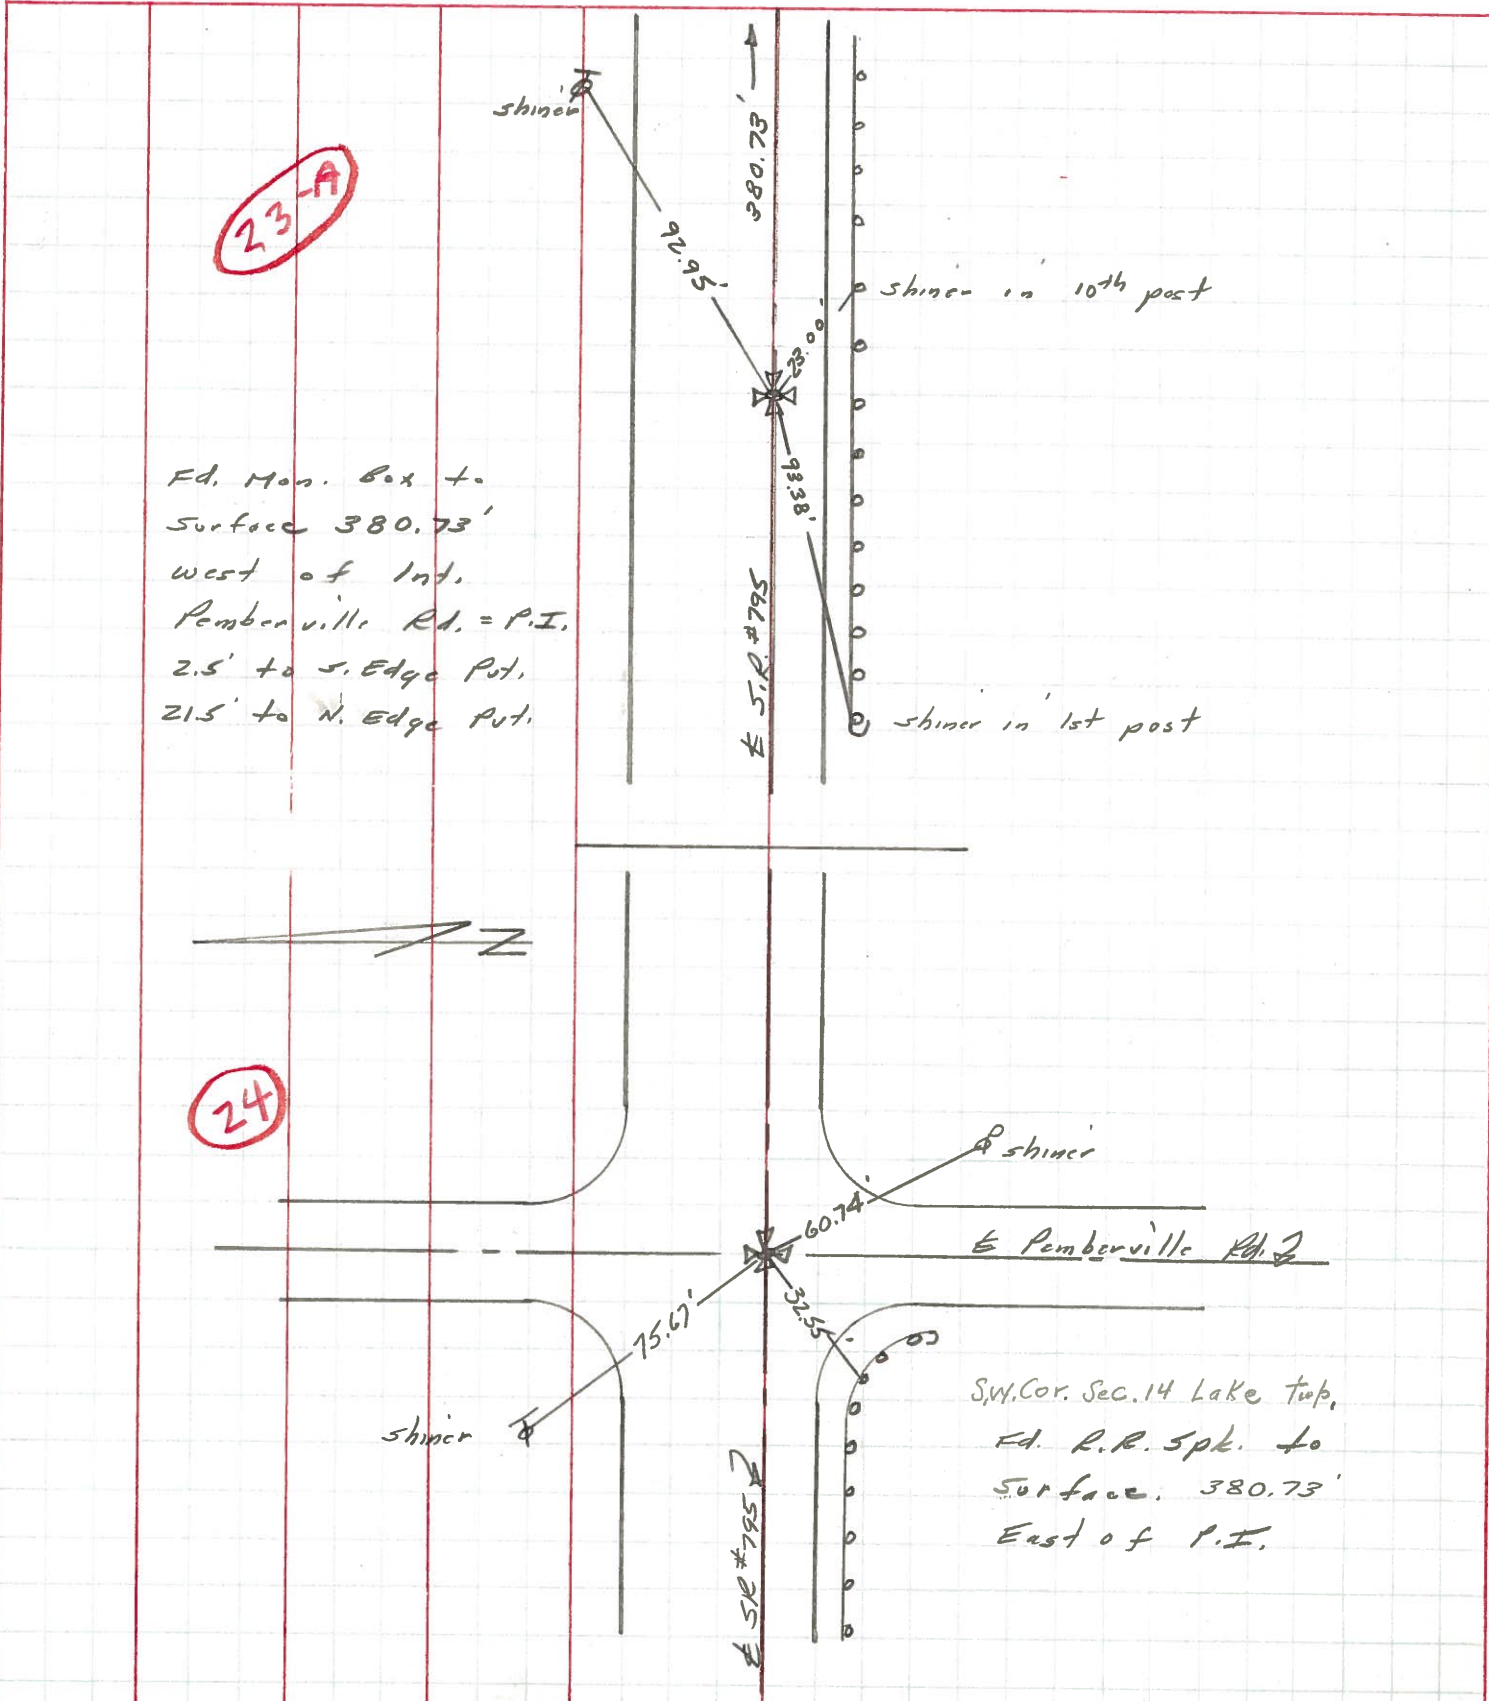 shiner
380.73'
23-A
92.95'
shiner in 10th post
23.00'
93.38'
Fd. Mon. Box to
Surface 380.73'
West of Int.
Pemberville Rd. = P.I.
2.5' to S. Edge Pvt.
21.5' to N. Edge Pvt.
℄ S.R. #795
shiner in 1st post
N
24
shiner
60.74'
℄ Pemberville Rd.
75.67'
32.55'
shiner
S.W. Cor. Sec. 14 Lake Twp.
Fd. R.R. Spk. to
Surface. 380.73'
East of P.I.
℄ SR #795